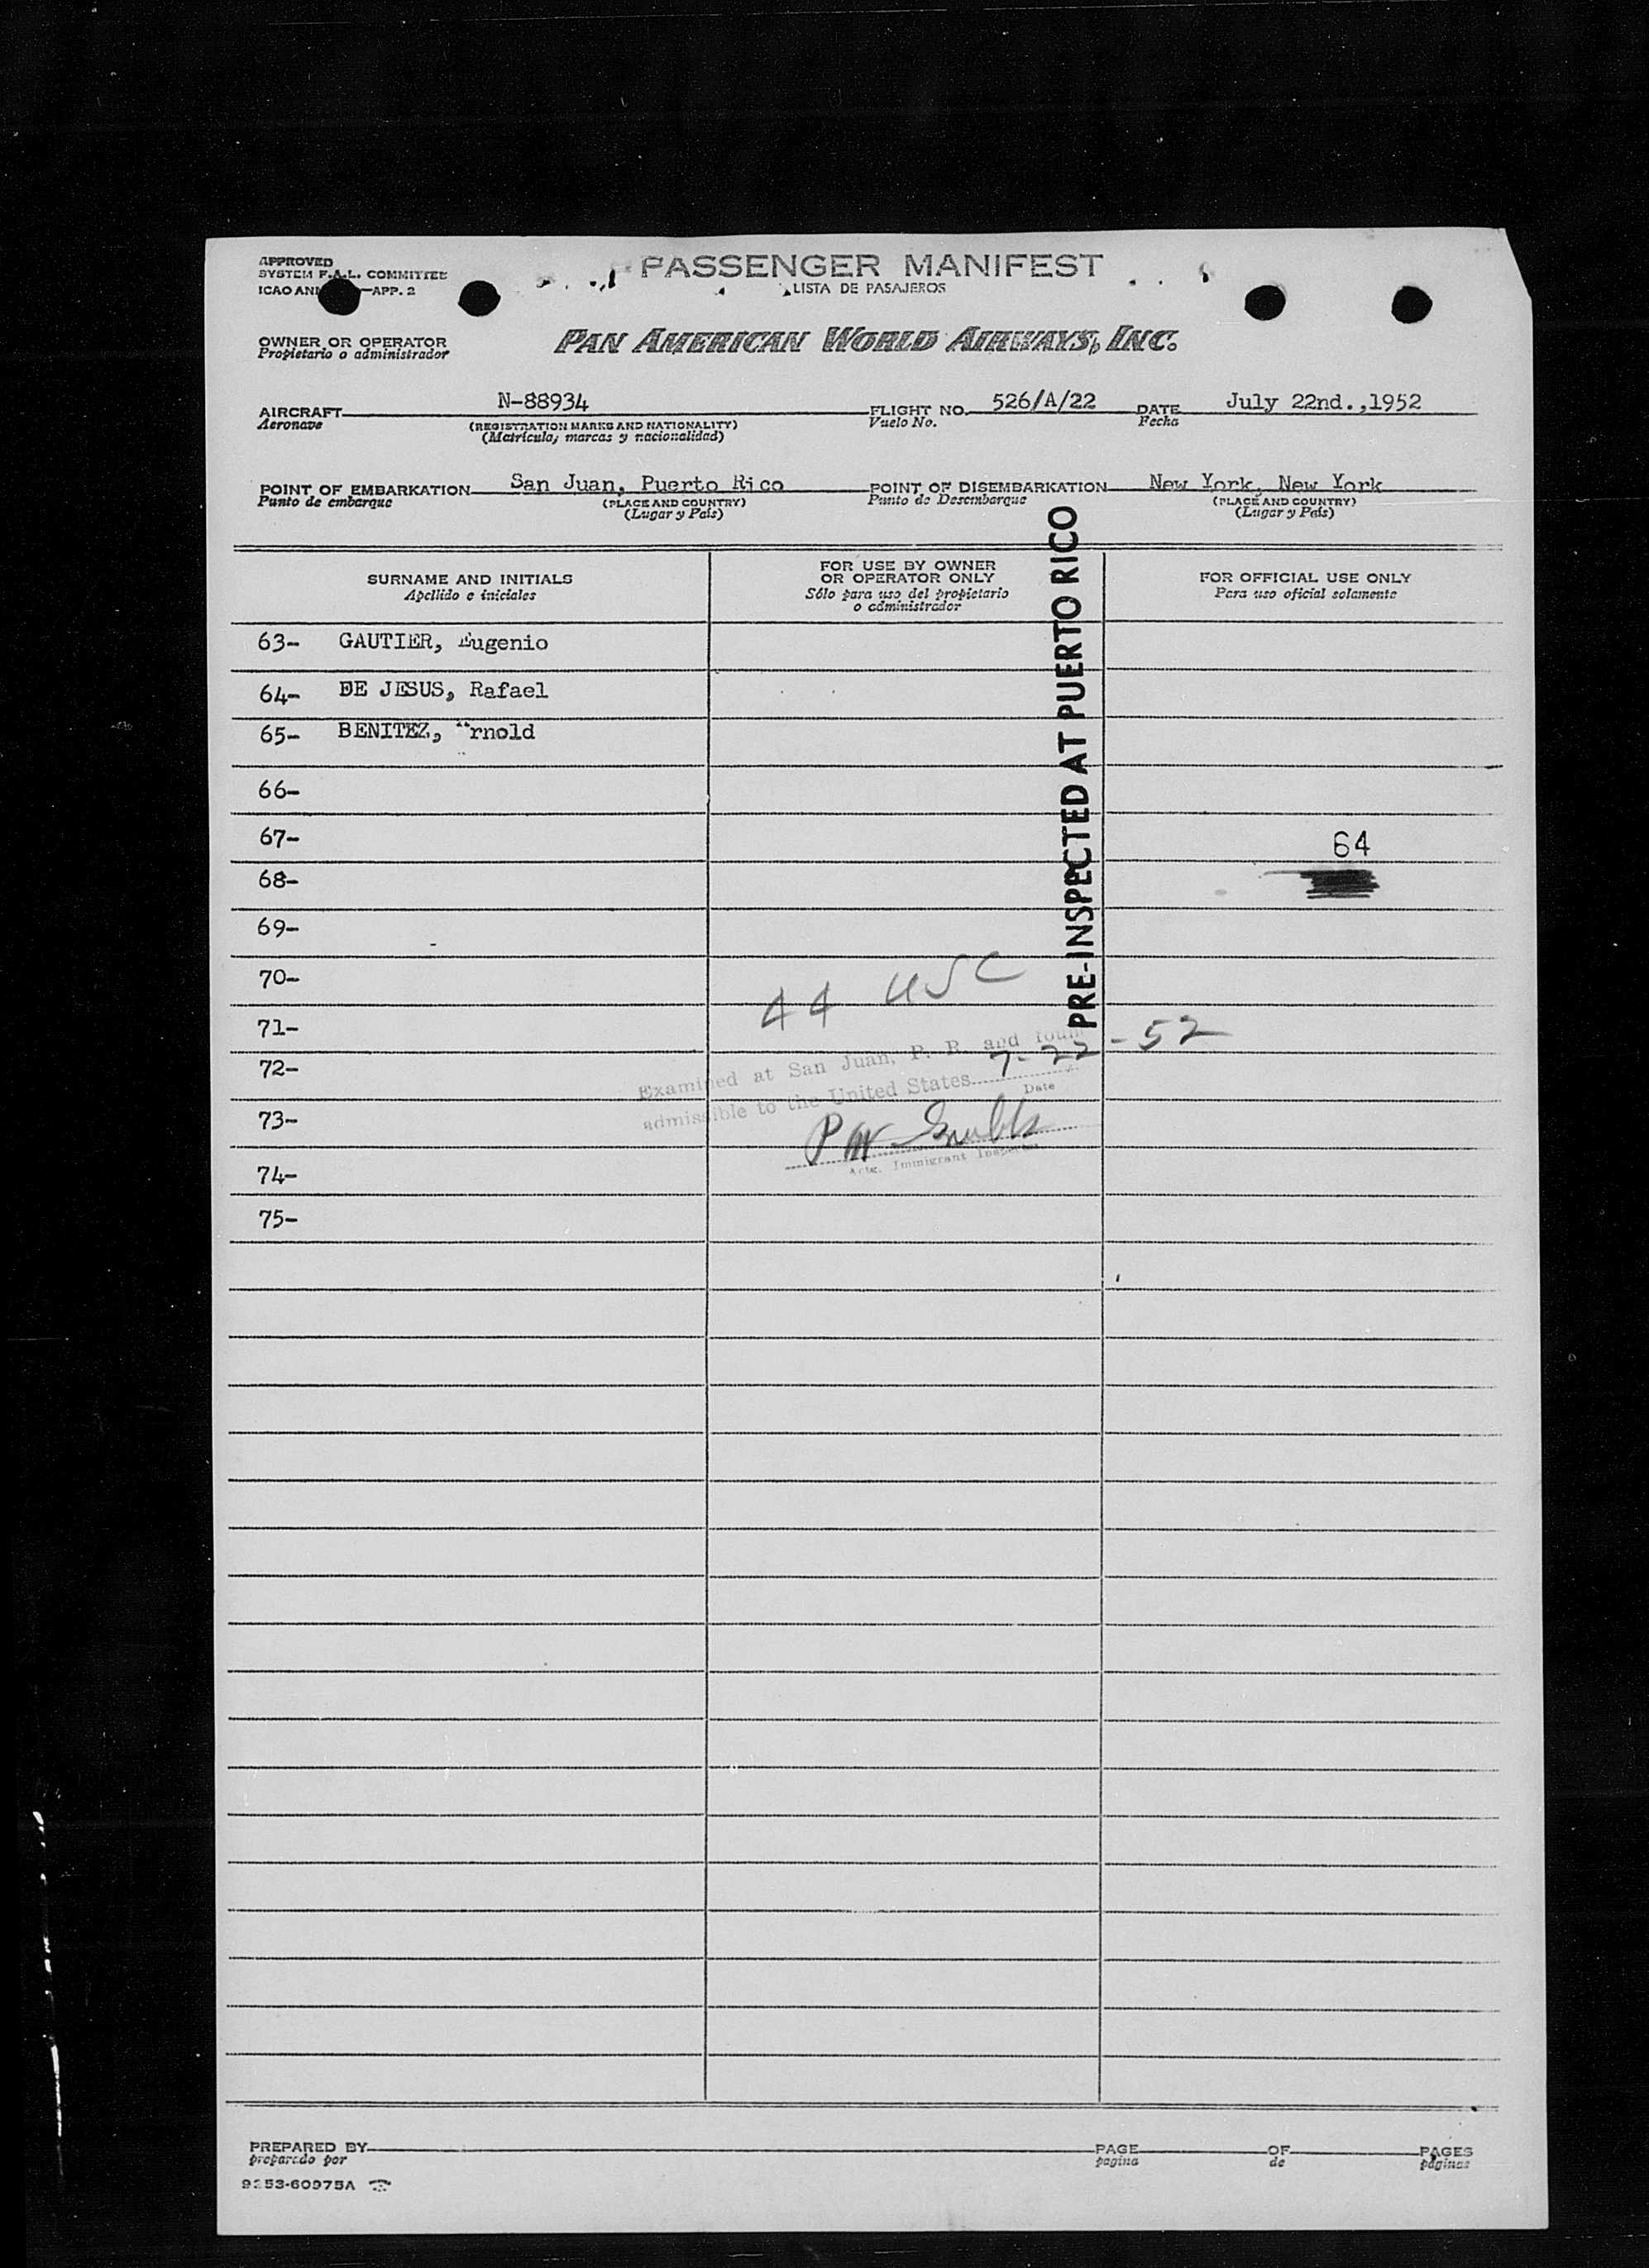 APPROVED
SYSTEM F.A.L. COMMITTEE
ICAO APP. 2
PASSENGER MANIFEST
LISTA DE PASAJEROS
OWNER OR OPERATOR
Propietario o administrador
PAN AMERICAN WORLD AIRWAYS, INC.
AIRCRAFT N-88934 FLIGHT NO. 526/A/22 DATE July 22nd.,1952
Aeronave (REGISTRATION MARKS AND NATIONALITY) Vuelo No. Fecha
(Matrícula, marcas y nacionalidad)
POINT OF EMBARKATION San Juan, Puerto Rico POINT OF DISEMBARKATION New York, New York
Punto de embarque (PLACE AND COUNTRY) Punto de Desembarque (PLACE AND COUNTRY)
(Lugar y País) (Lugar y País)
SURNAME AND INITIALS
Apellido e iniciales
FOR USE BY OWNER
OR OPERATOR ONLY
Sólo para uso del propietario
o administrador
FOR OFFICIAL USE ONLY
Para uso oficial solamente
63- GAUTIER, Eugenio
64- DE JESUS, Rafael
65- BENITEZ, Arnold
66-
67-
64
68-
69-
70-
71-
72-
73-
74-
75-
PRE-INSPECTED AT PUERTO RICO
44 USC
Examined at San Juan, P. R. and found
admissible to the United States 7-22-52
Date
Actg. Immigrant Inspector
PREPARED BY PAGE OF PAGES
preparado por pagina de páginas